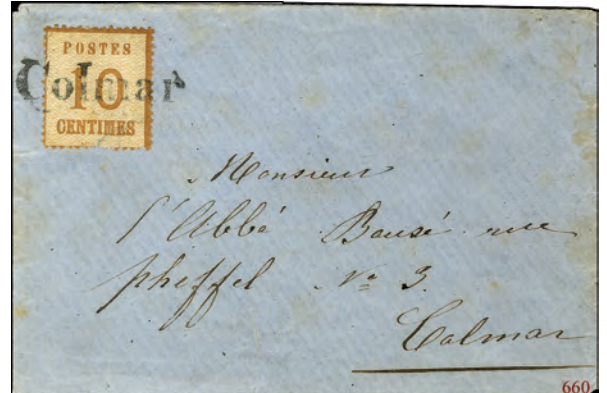 POSTES
10
CENTIMES
Colmar
Monsieur
l'Abbé Bausé rue
pheffel N° 3.
Colmar
660